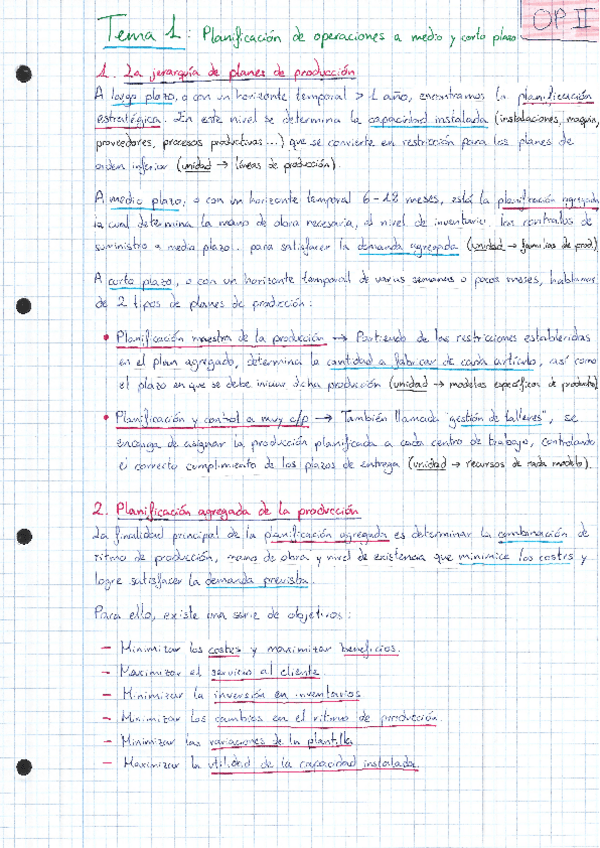 OP II
Tema 1: Planificación de operaciones a medio y corto plazo
1. La jerarquía de planes de producción
A largo plazo, o con un horizonte temporal > 1 año, encontramos la planificación
estratégica. En este nivel se determina la capacidad instalada (instalaciones, maquin,
proveedores, procesos productivos...) que se convierte en restricción para los planes de
orden inferior (unidad → líneas de producción).
A medio plazo, o con un horizonte temporal 6-18 meses, está la planificación agregada
la cual determina la mano de obra necesaria, el nivel de inventario, los contratos de
suministro a medio plazo.. para satisfacer la demanda agregada (unidad → familias de prod)
A corto plazo, o con un horizonte temporal de varias semanas o pocos meses, hablamos
de 2 tipos de planes de producción:
• Planificación maestra de la producción → Partiendo de las restricciones establecidas
en el plan agregado, determina la cantidad a fabricar de cada artículo, así como
el plazo en que se debe iniciar dicha producción (unidad → modelos específicos de producto)
• Planificación y control a muy c/p → También llamada "gestión de talleres", se
encarga de asignar la producción planificada a cada centro de trabajo, controlando
el correcto cumplimiento de los plazos de entrega (unidad → recursos de cada modelo).
2. Planificación agregada de la producción
La finalidad principal de la planificación agregada es determinar la combinación de
ritmo de producción, mano de obra y nivel de existencia que minimice los costes y
logre satisfacer la demanda prevista.
Para ello, existe una serie de objetivos:
- Minimizar los costes y maximizar beneficios.
- Maximizar el servicio al cliente.
- Minimizar la inversión en inventarios.
- Minimizar los cambios en el ritmo de producción.
- Minimizar las variaciones de la plantilla.
- Maximizar la utilidad de la capacidad instalada.